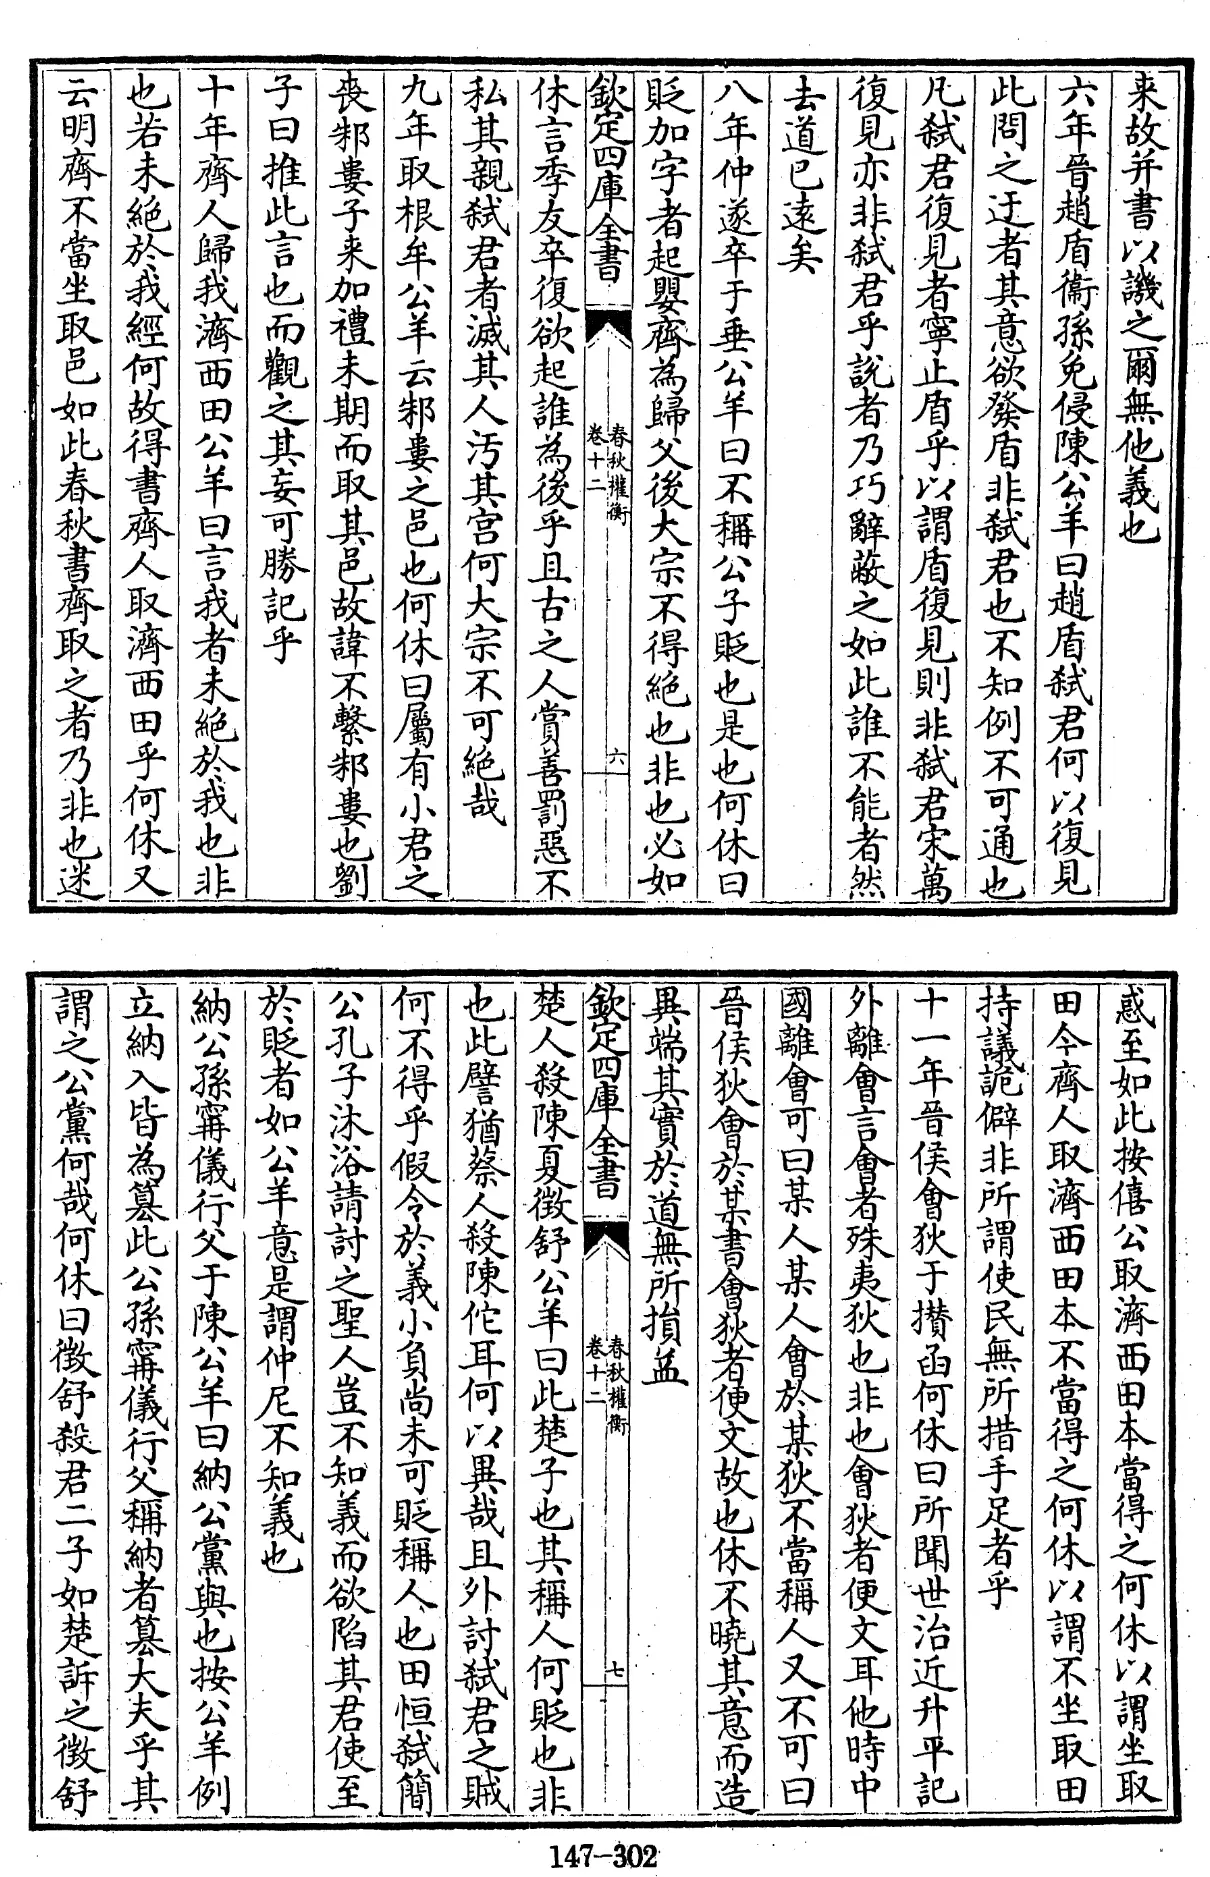 来故并書以譏之爾無他義也
六年晉趙盾衞孫免侵陳公羊曰趙盾弑君何以復見
此問之迂者其意欲發盾非弑君也不知例不可通也
凡弑君復見者寧止盾乎以謂盾復見則非弑君宋萬
復見亦非弑君乎説者乃巧辭蔽之如此誰不能者然
去道已遠矣
八年仲遂卒于垂公羊曰不稱公子貶也是也何休曰
貶加字者起嬰齊為歸父後大宗不得絶也非也必如
欽定四庫全書
春秋權衡
卷十二
六
休言季友卒復欲起誰為後乎且古之人賞善罰惡不
私其親弑君者滅其人汚其宫何大宗不可絶哉
九年取根牟公羊云邾婁之邑也何休曰屬有小君之
喪邾婁子来加禮未期而取其邑故諱不繫邾婁也劉
子曰推此言也而觀之其妄可勝記乎
十年齊人歸我濟西田公羊曰言我者未絶於我也非
也若未絶於我經何故得書齊人取濟西田乎何休又
云明齊不當坐取邑如此春秋書齊取之者乃非也迷
惑至如此按僖公取濟西田本當得之何休以謂坐取
田今齊人取濟西田本不當得之何休以謂不坐取田
持議詭僻非所謂使民無所措手足者乎
十一年晉侯會狄于攢函何休曰所聞世治近升平記
外離會言會者殊夷狄也非也會狄者便文耳他時中
國離會可曰某人某人會於某狄不當稱人又不可曰
晉侯狄會於某書會狄者便文故也休不曉其意而造
異端其實於道無所損益
欽定四庫全書
春秋權衡
卷十二
七
楚人殺陳夏徵舒公羊曰此楚子也其稱人何貶也非
也此譬猶蔡人殺陳佗耳何以異哉且外討弑君之賊
何不得乎假令於義小負尚未可貶稱人也田恒弑簡
公孔子沐浴請討之聖人豈不知義而欲陷其君使至
於貶者如公羊意是謂仲尼不知義也
納公孫寗儀行父于陳公羊曰納公黨與也按公羊例
立納入皆為簒此公孫寗儀行父稱納者簒大夫乎其
謂之公黨何哉何休曰徴舒殺君二子如楚訴之徴舒
147-302